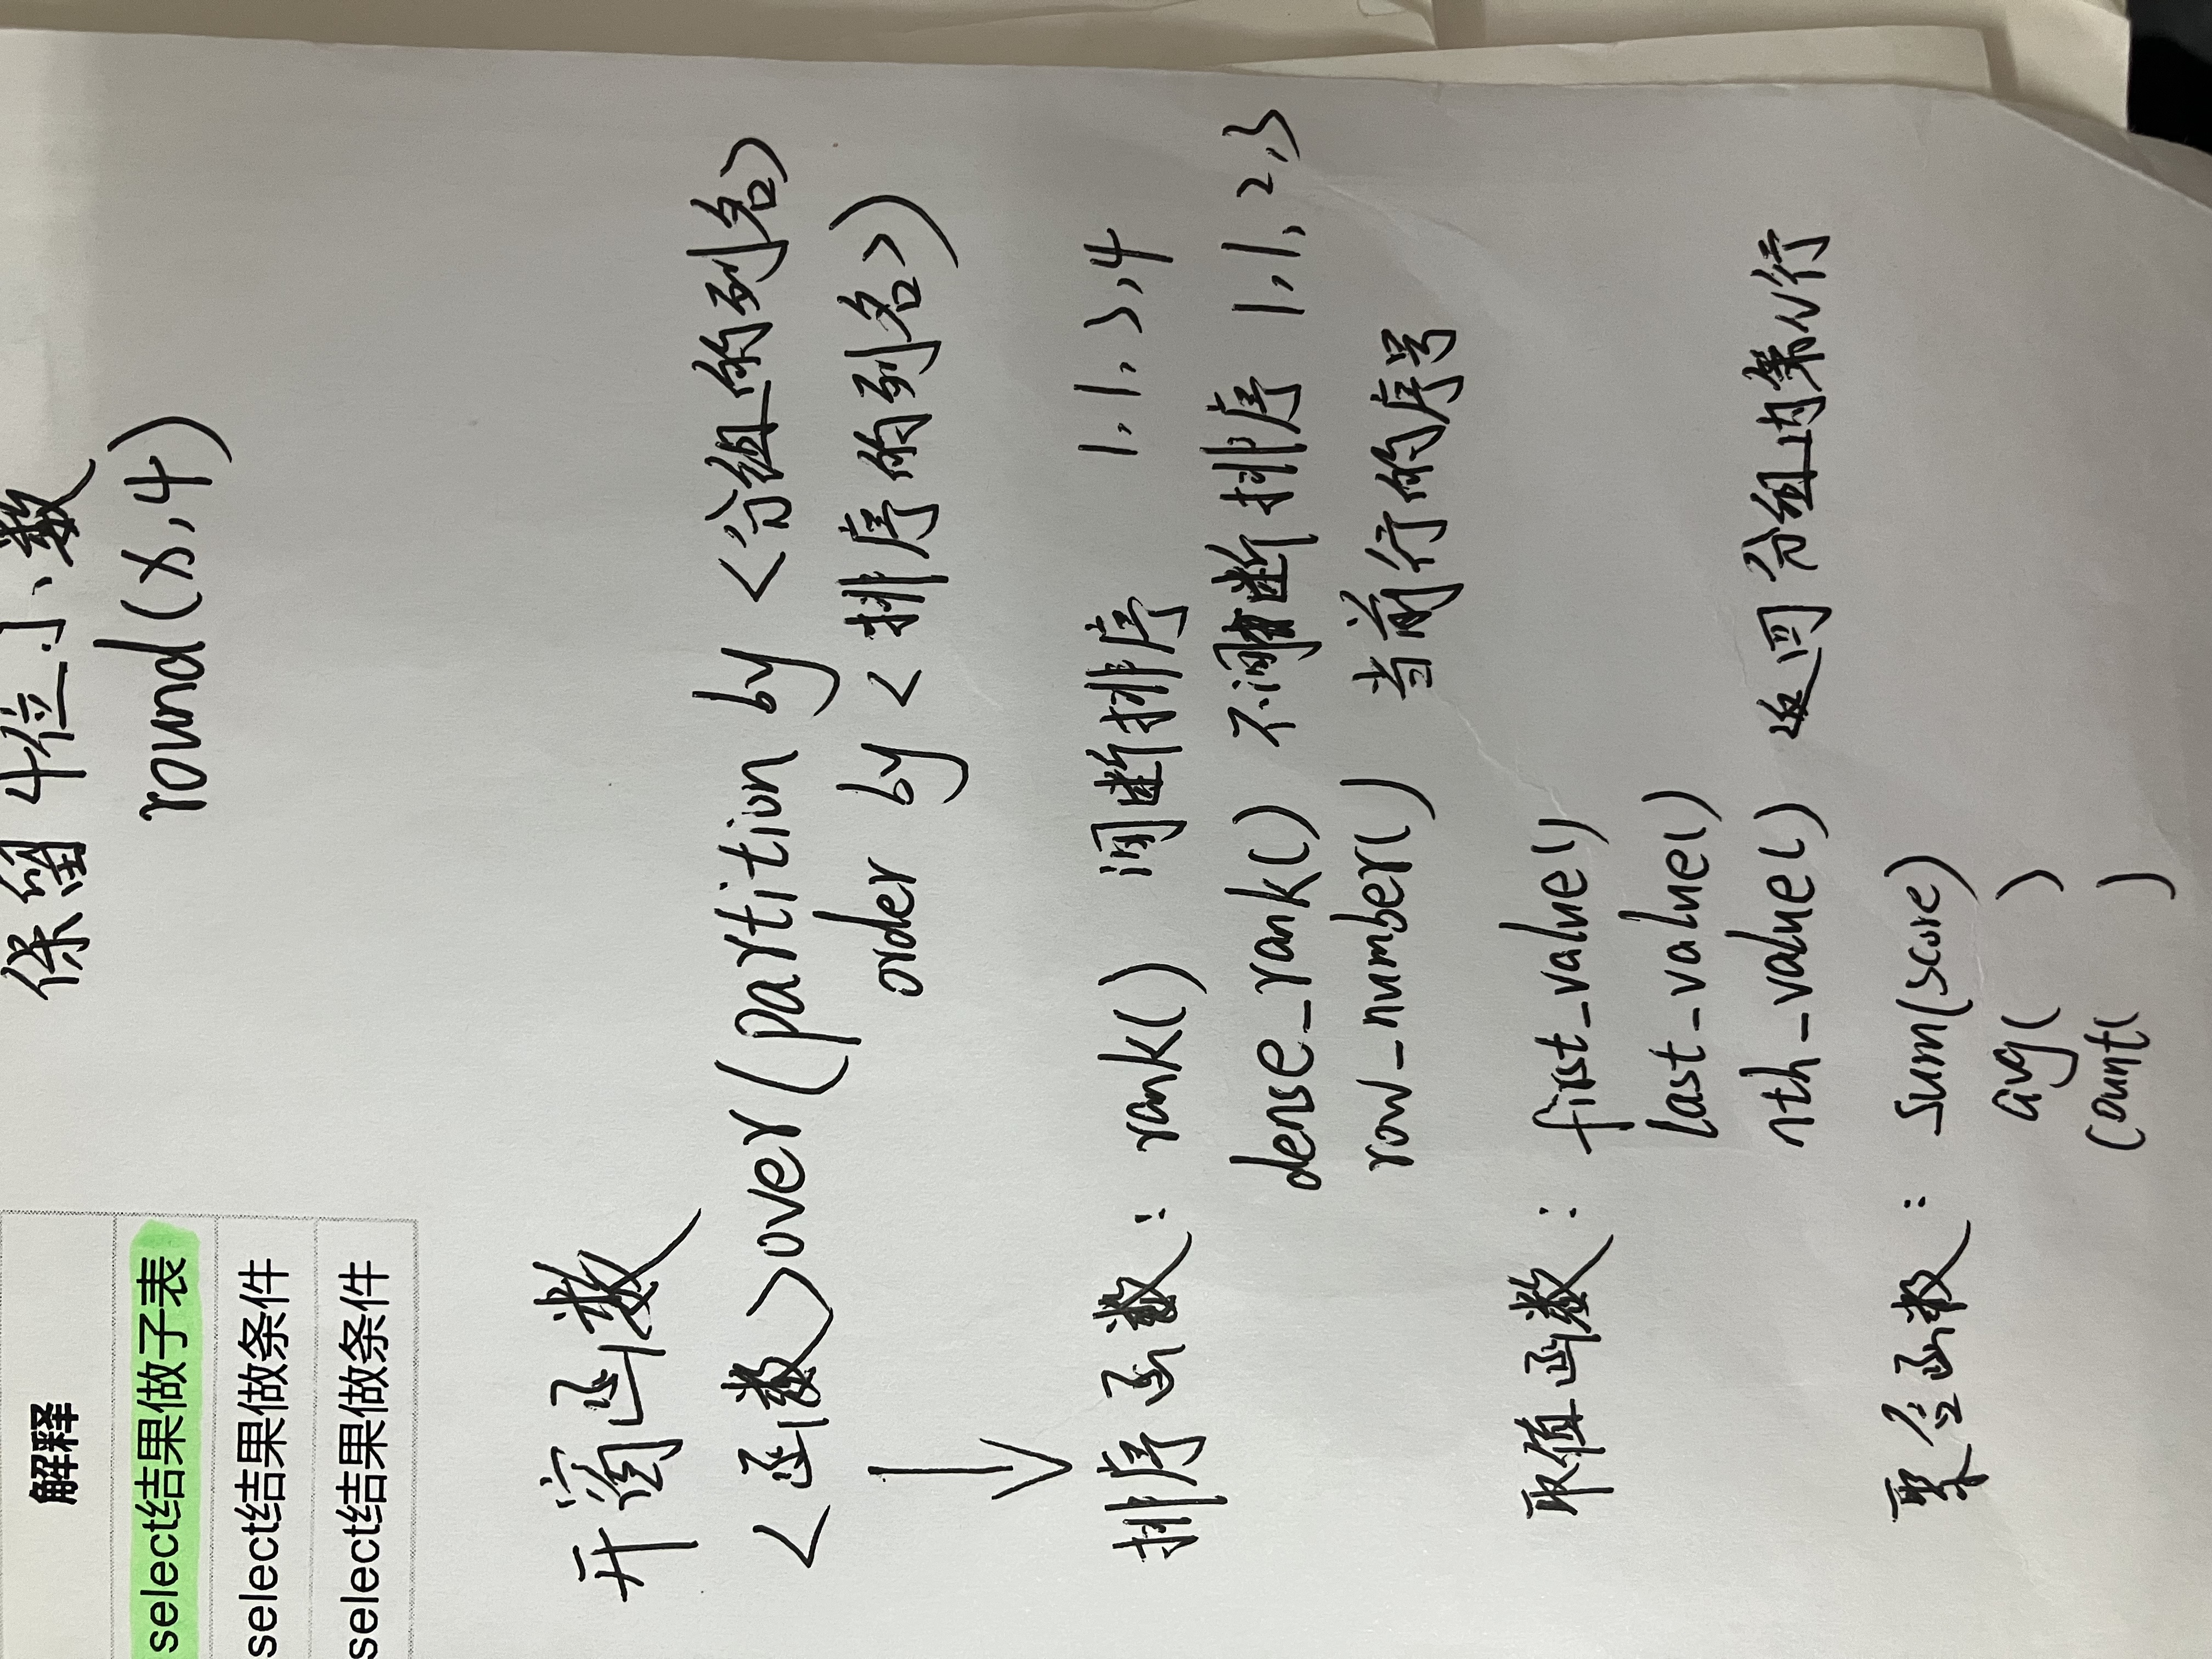 保留4位小数
round(x,4)
解释
select结果做子表
select结果做条件
select结果做条件
开窗函数
<函数>over(partition by <分组的列名>
order by <排序的列名>)
排序函数: rank() 间断排序 1,1,3,4
dense_rank() 不间断排序 1,1,2,3
row_number() 当前行的序号
取值函数: first_value()
last_value()
nth_value() 返回分组内第N行
聚合函数: sum(score)
avg( )
count( )